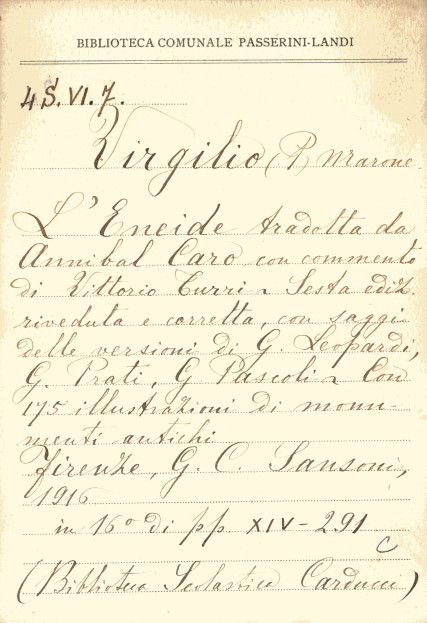 BIBLIOTECA COMUNALE PASSERINI-LANDI
4S.VI.7.
Virgilio (P) Marone
L'Eneide tradotta da
Annibal Caro con commento
di Vittorio Turri ~ Sesta ediz.
riveduta e corretta, con saggi
delle versioni di G. Leopardi,
G. Prati, G Pascoli ~ Con
175 illustrazioni di monu-
menti antichi
Firenze, G. C. Sansoni,
1916
in 16° di pp. XIV-291
C
(Biblioteca Scolastica Carducci)